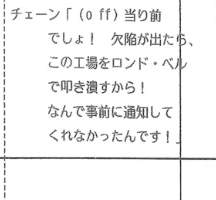 チェーン「(off)当り前
でしょ！　欠陥が出たら、
この工場をロンド・ベル
で叩き潰すから！
なんで事前に通知して
くれなかったんです！」